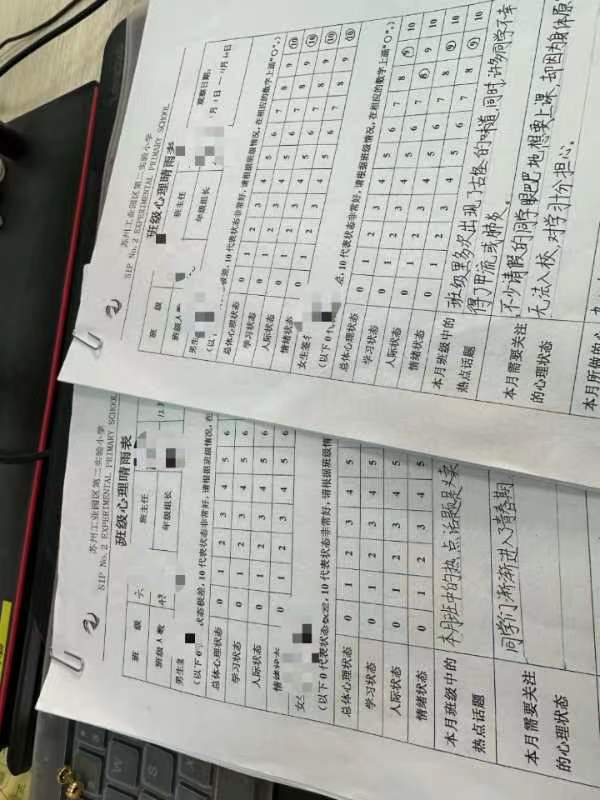 苏州工业园区第二实验小学
SIP No.2 EXPERIMENTAL PRIMARY SCHOOL
班级心理晴雨表
观察日期:
班级
班主任
班级人数
年级组长
男生
10代表状态非常好,请根据班级情况,在相应的数字上画“○”。)
总体心理状态 0 1 2 3 4 5 6 7 8 9 10
学习状态 0 1 2 3 4 5 6 7 8 9 10
人际状态 0 1 2 3 4 5 6 7 8 9 10
情绪状态 0 1 2 3 4 5 6 7 8 9 10
女生
(以下0
10代表状态非常好,请根据班级情况,在相应的数字上画“○”。)
总体心理状态 0 1 2 3 4 5 6 7 8 9 10
学习状态 0 1 2 3 4 5 6 7 8 9 10
人际状态 0 1 2 3 4 5 6 7 8 9 10
情绪状态 0 1 2 3 4 5 6 7 8 9 10
本月班级中的
热点话题
班级里多次出现了古怪的味道,同时,许多同学不幸
得了甲流或肺炎。
本月需要关注
的心理状态
不少请假的同学眼巴巴地想要上课,却因为身体原
无法入校,对学习十分担心。
本月所做的心
苏州工业园区第二实验小学
SIP No.2 EXPERIMENTAL PRIMARY SCHOOL
班级心理晴雨表
班级 六
班主任
班级人数
年级组长
男生
(以下0
状态极差,10代表状态非常好,请根据班级情况,在
总体心理状态 0 1 2 3 4 5 6
学习状态 0 1 2 3 4 5 6
人际状态 0 1 2 3 4 5 6
情绪状态 0 1 2 3 4 5 6
女
(以下0代表状态极差,10代表状态非常好,请根据班级情
总体心理状态 0 1 2 3 4 5
学习状态 0 1 2 3 4 5
人际状态 0 1 2 3 4 5
情绪状态 0 1 2 3 4 5
本月班级中的
热点话题
本月班中的热点话题是
本月需要关注
的心理状态
同学们渐渐进入了青春期